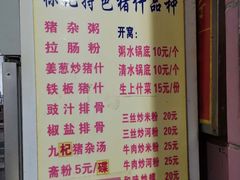 标记特色猪什品种
猪杂粥
拉肠粉
姜葱炒猪什
铁板猪什
豉汁排骨
椒盐排骨
九杞猪杂汤
斋粉5元/碟
开窝：
粥水锅底 10元/个
清水锅底 10元/个
生上什菜 15元/份
三丝炒米粉 20元
三丝炒河粉 20元
牛肉炒米粉 25元
牛肉炒河粉 25元